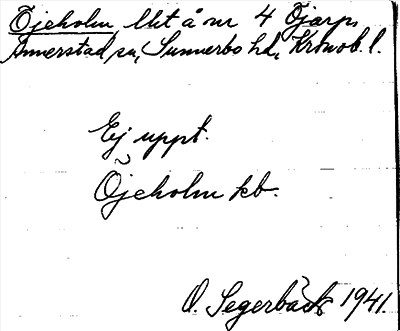 Öjeholm lht å nr 4 Öjarp,
Annerstad sn, Sunnerbo hd, Kronob. l.
Ej uppt.
Öjeholm kb.
O. Segerbäck 1941.